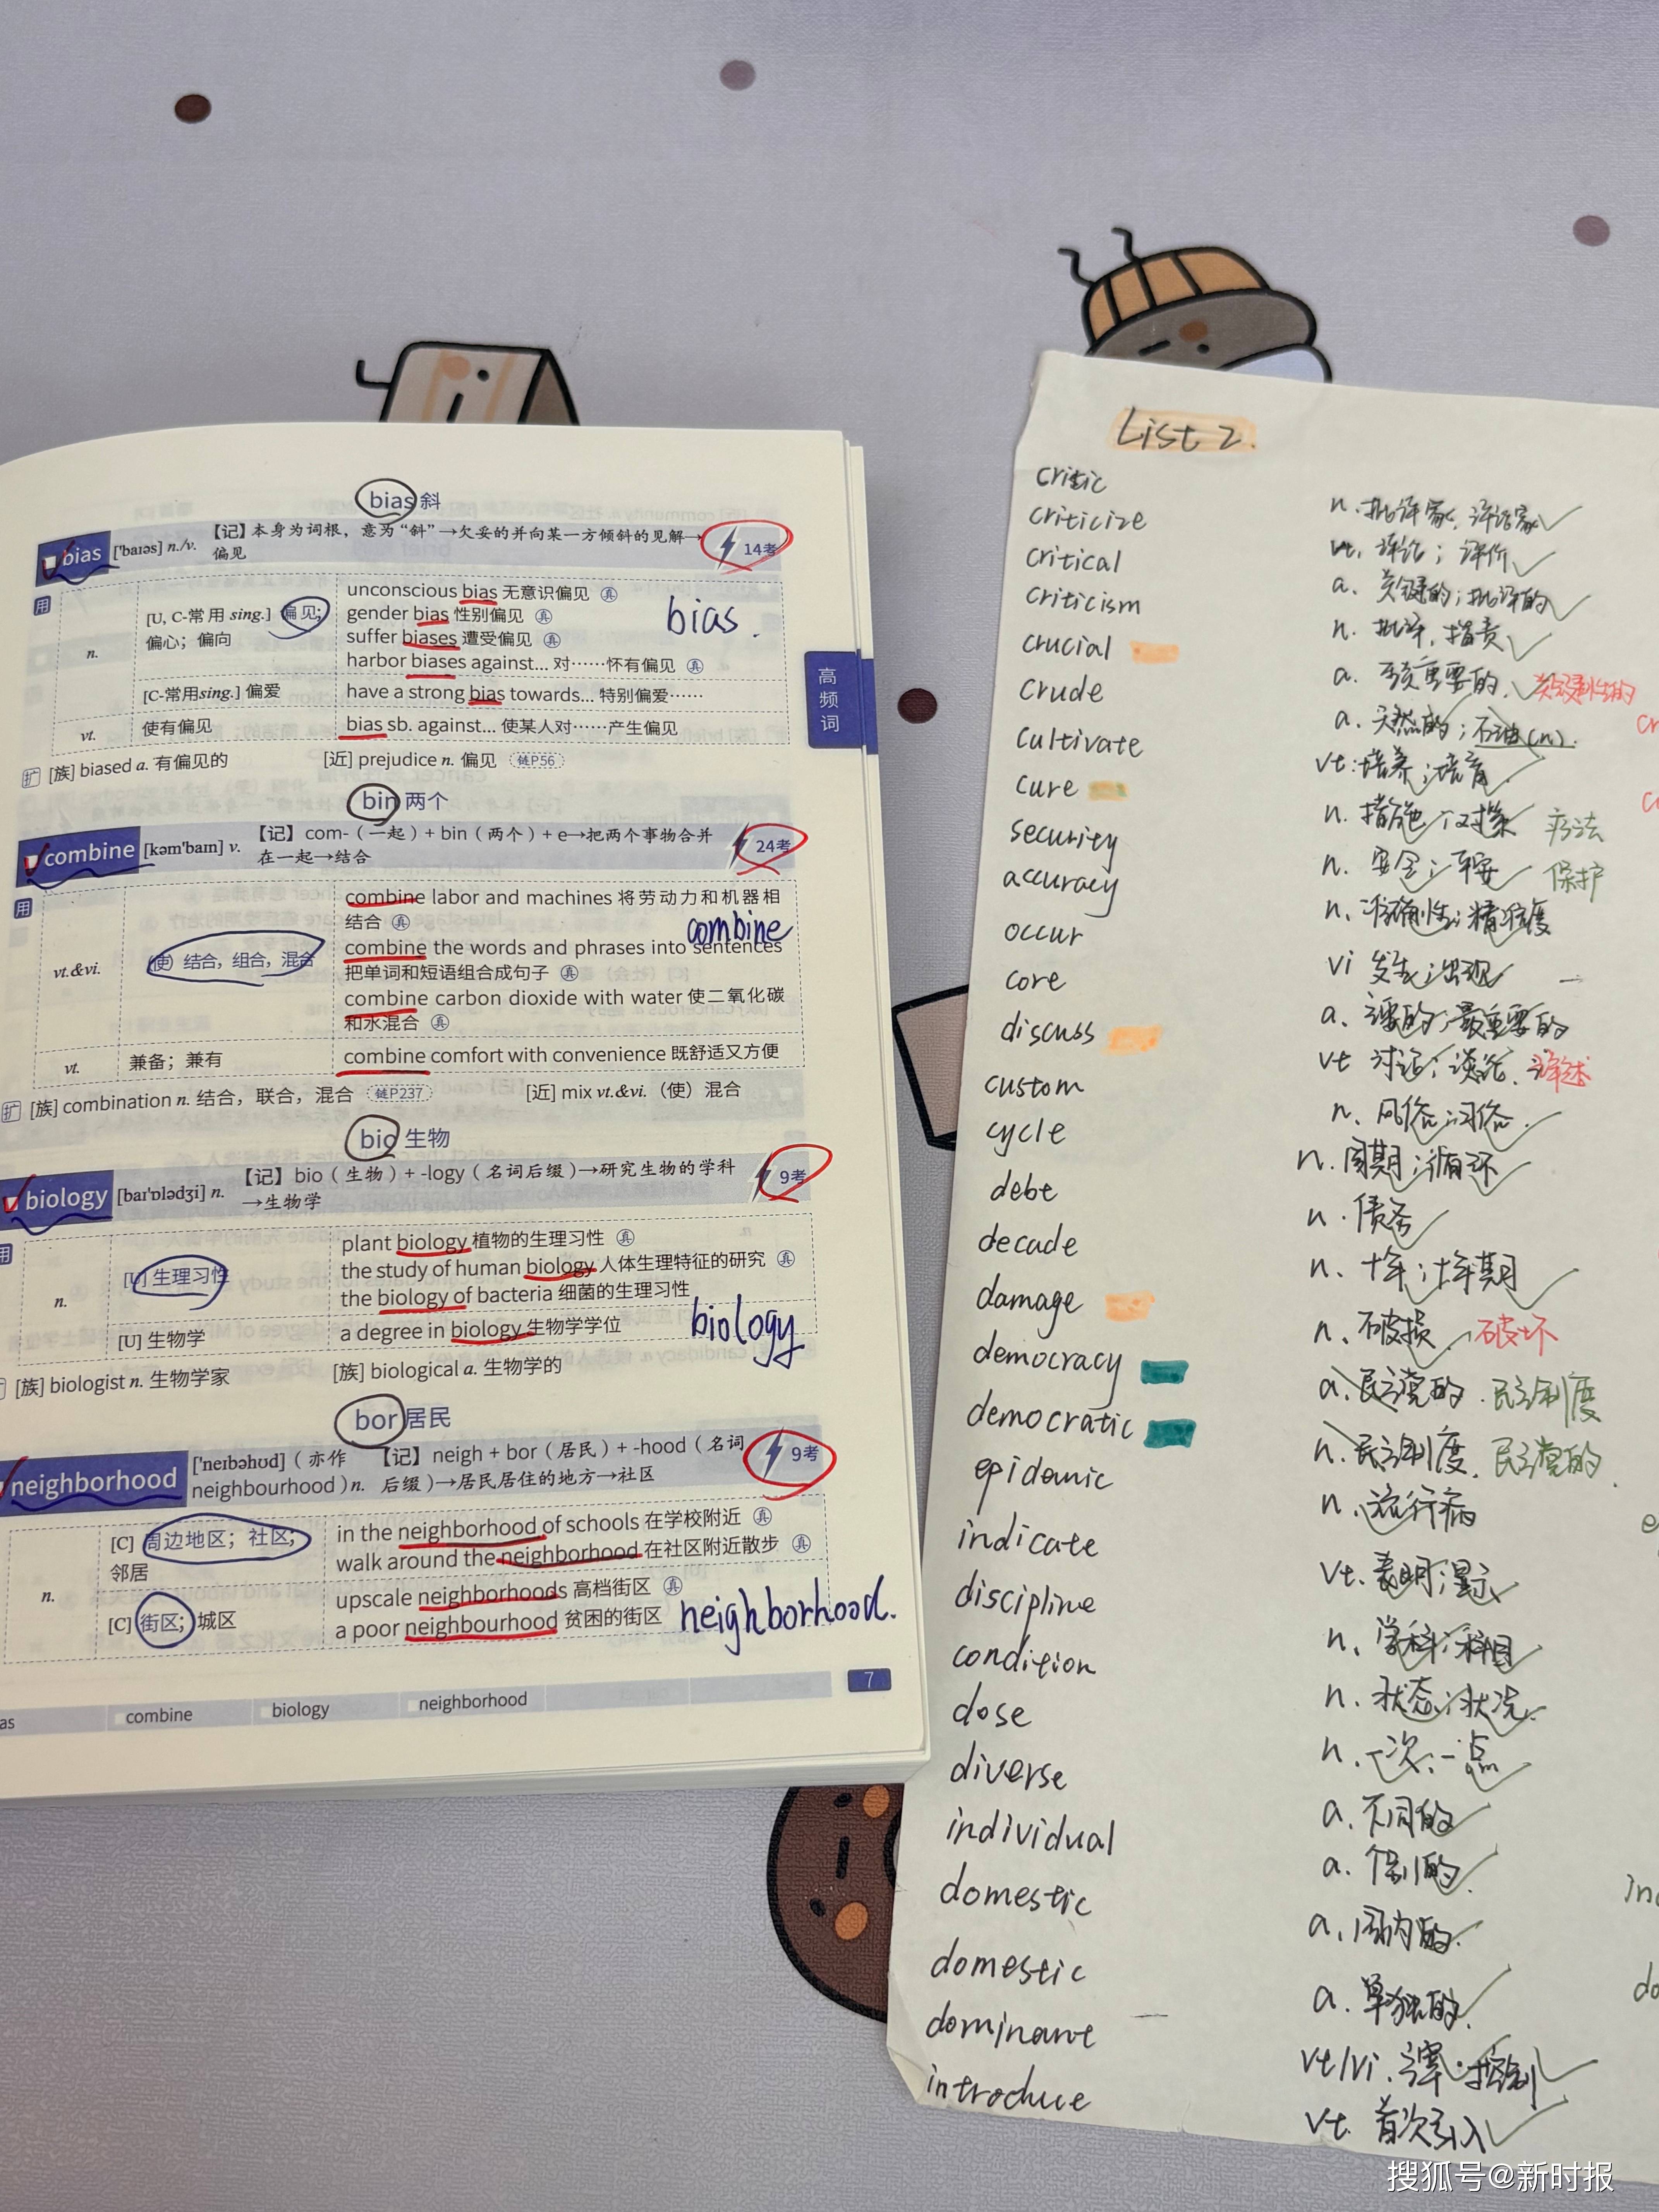 bias 斜
bias ['baɪəs] n./v. 【记】本身为词根，意为“斜”→欠妥的并向某一方倾斜的见解→偏见 14考
用
n.
[U, C-常用 sing.] 偏见；
偏心；偏向
unconscious bias 无意识偏见 真
gender bias 性别偏见 真
suffer biases 遭受偏见 真
harbor biases against... 对……怀有偏见 真
bias.
[C-常用sing.] 偏爱
have a strong bias towards... 特别偏爱……
vt.
使有偏见
bias sb. against... 使某人对……产生偏见
扩 [族] biased a. 有偏见的 [近] prejudice n. 偏见 链P56
高频词
bin 两个
combine [kəm'baɪn] v. 【记】com-（一起）+ bin（两个）+ e→把两个事物合并
在一起→结合
24考
用
vt.&vi.
（使）结合，组合，混合
combine labor and machines 将劳动力和机器相
结合 真
combine
combine the words and phrases into sentences
把单词和短语组合成句子 真
combine carbon dioxide with water 使二氧化碳
和水混合 真
vt.
兼备；兼有
combine comfort with convenience 既舒适又方便
扩 [族] combination n. 结合，联合，混合 链P237 [近] mix vt.&vi.（使）混合
bio 生物
biology [baɪ'ɒlədʒi] n. 【记】bio（生物）+ -logy（名词后缀）→研究生物的学科
→生物学
9考
用
n.
[U] 生理习性
plant biology 植物的生理习性 真
the study of human biology 人体生理特征的研究 真
the biology of bacteria 细菌的生理习性
[U] 生物学
a degree in biology 生物学学位
biology
[族] biologist n. 生物学家 [族] biological a. 生物学的
bor 居民
neighborhood ['neɪbəhʊd]（亦作
neighbourhood）n.
【记】neigh + bor（居民）+ -hood（名词
后缀）→居民居住的地方→社区
9考
n.
[C] 周边地区；社区；
邻居
in the neighborhood of schools 在学校附近 真
walk around the neighborhood 在社区附近散步 真
[C] 街区；城区
upscale neighborhoods 高档街区 真
a poor neighbourhood 贫困的街区
neighborhood.
7
as combine biology neighborhood
List 2.
critic n. 批评家，评论家
criticize vt. 评论；评价
critical a. 关键的；批评的
criticism n. 批评，指责
crucial a. 至关重要的 关键性的
crude a. 天然的；石油(n).
cultivate vt. 培养；培育
cure n. 措施；对策 疗法
security n. 安全；平安 保护
accuracy n. 准确性；精准度
occur vi 发生；出现
core a. 主要的；最重要的
discuss vt 讨论；谈论. 详述
custom n. 风俗；习俗.
cycle n. 周期；循环
debt n. 债务
decade n. 十年；十年期
damage n. 破损 破坏
democracy a. 民主党的 民主制度
democratic n. 民主制度. 民主党的
epidemic n. 流行病
indicate vt. 表明；显示
discipline n. 学科；科目
condition n. 状态；状况.
dose n. 一次；一点
diverse a. 不同的
individual a. 个别的
domestic a. 国内的.
domestic a. 单独的.
dominant vt/vi. 主宰；控制
introduce vt. 首次引入
搜狐号@新时报